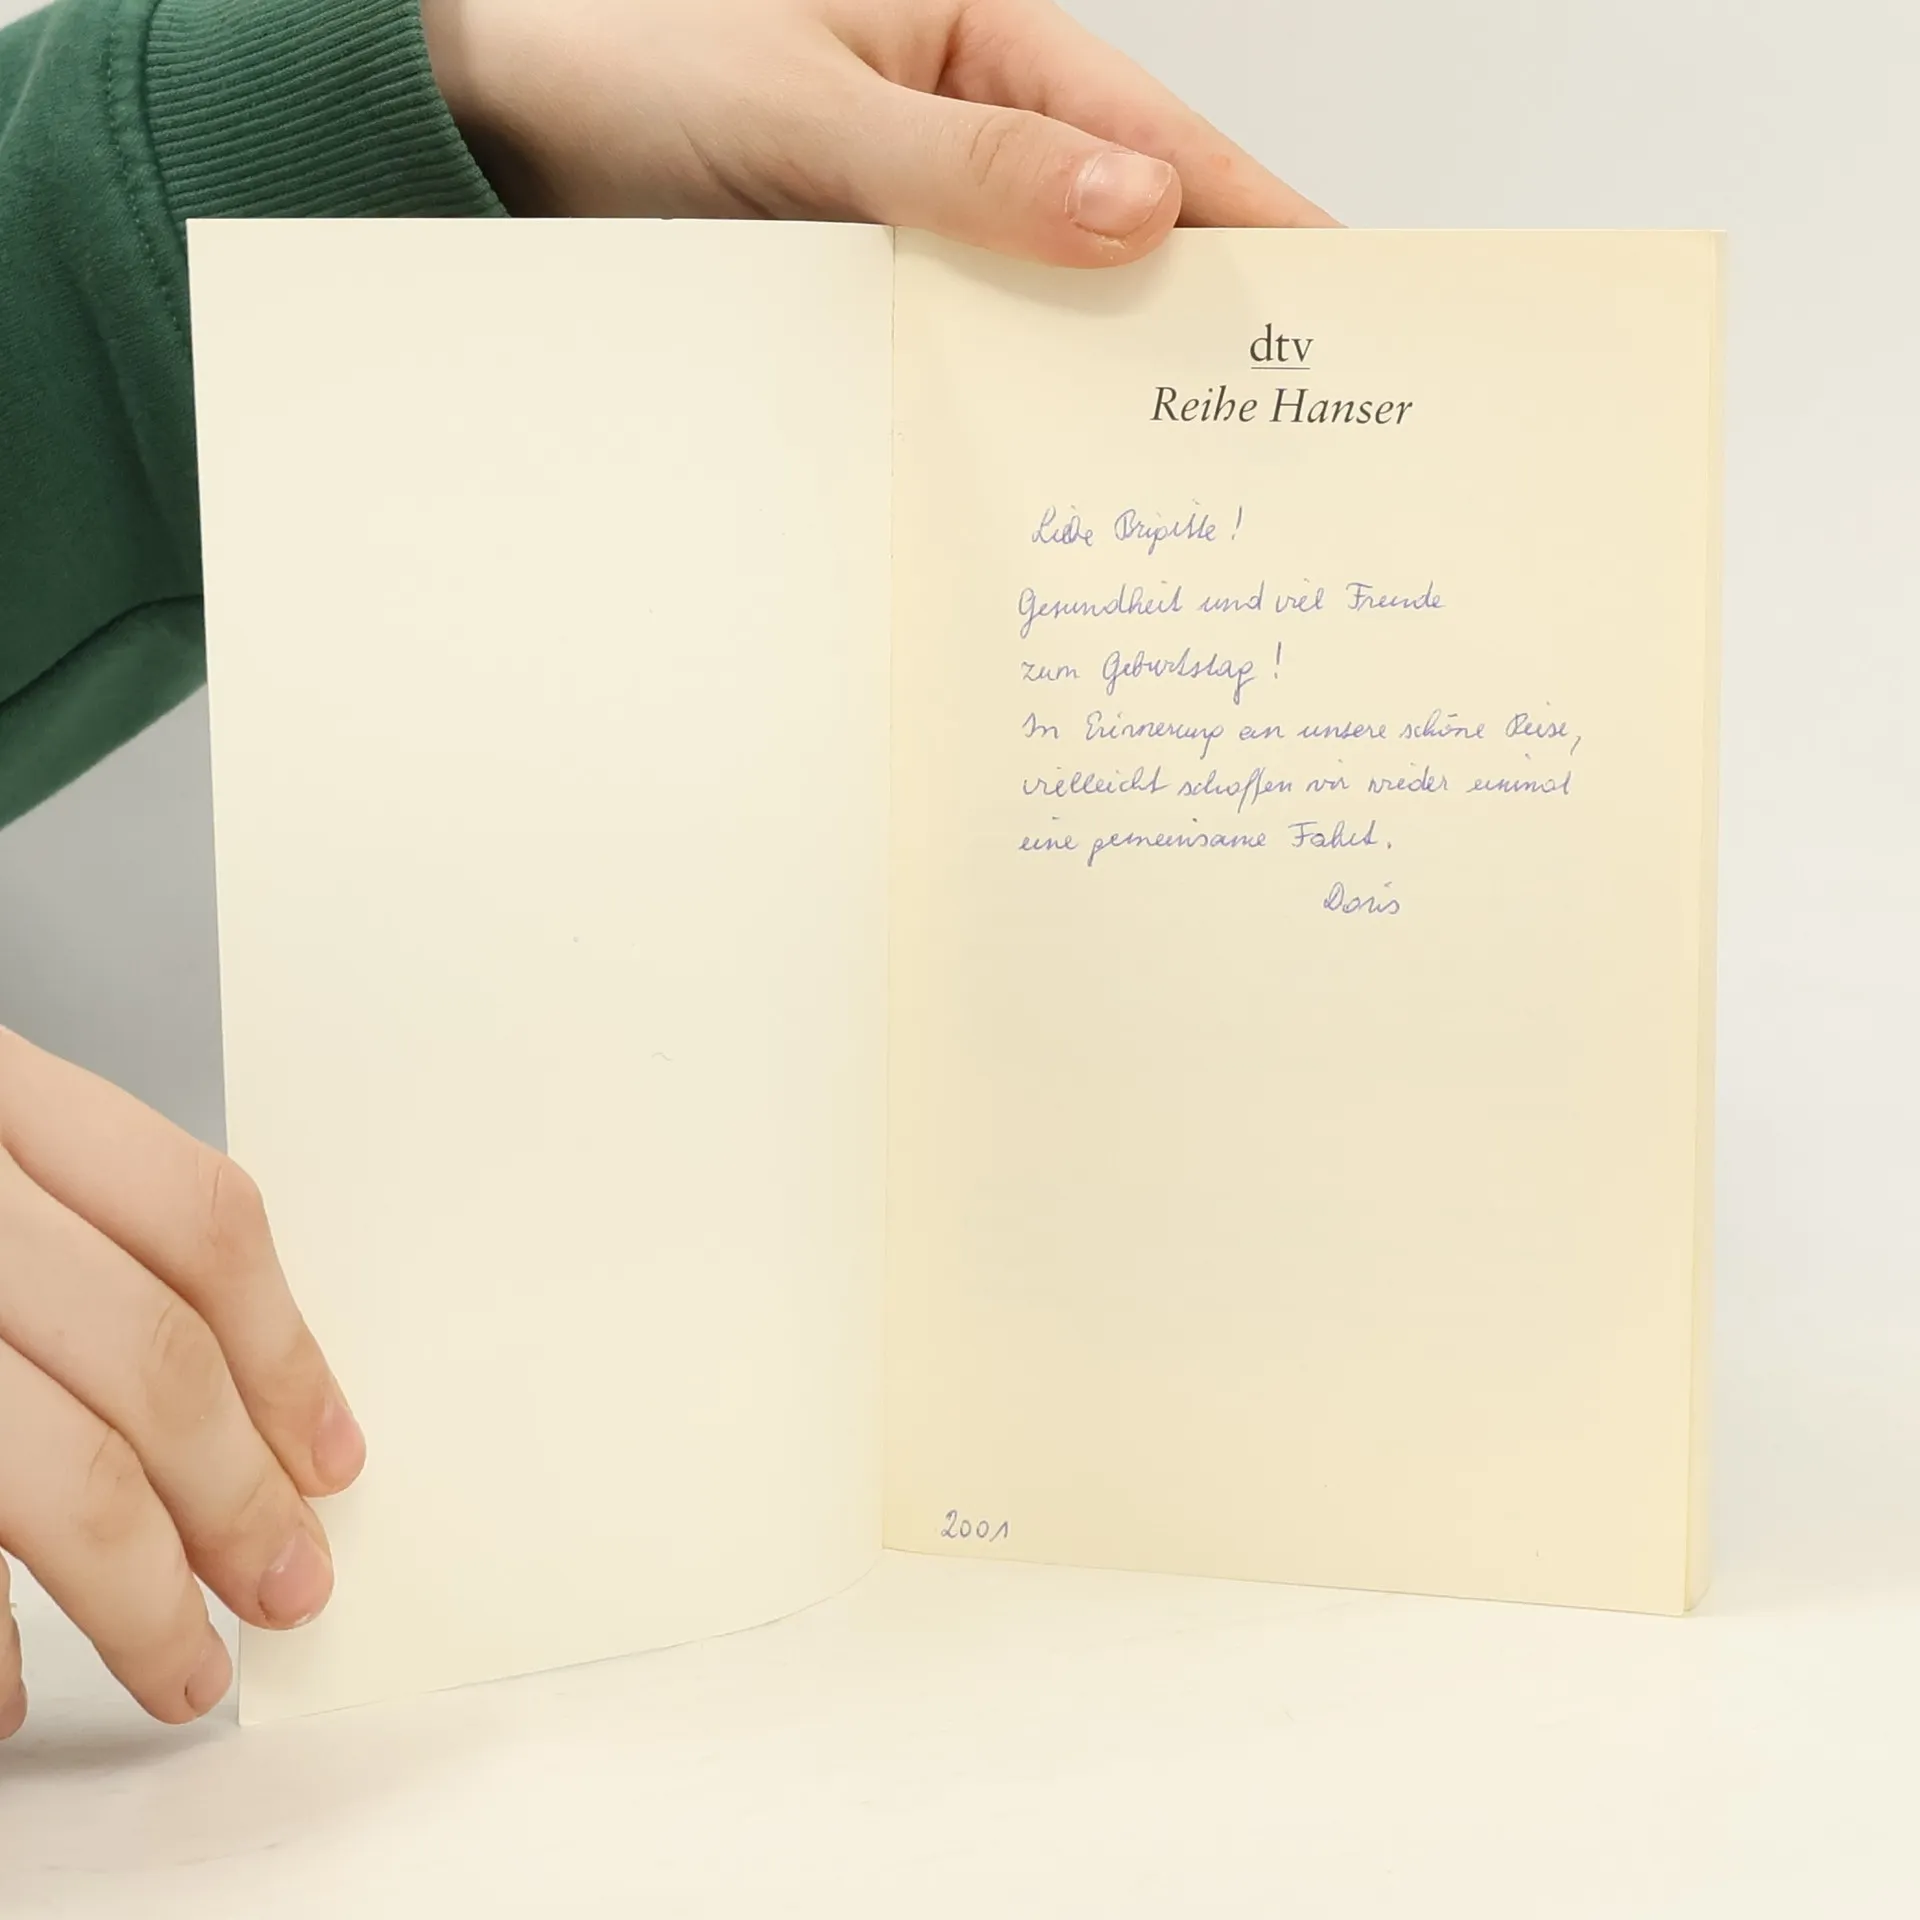 dtv
Reihe Hanser
Liebe Brigitte!
Gesundheit und viel Freude
zum Geburtstag!
In Erinnerung an unsere schöne Reise,
vielleicht schaffen wir wieder einmal
eine gemeinsame Fahrt.
Doris
2001